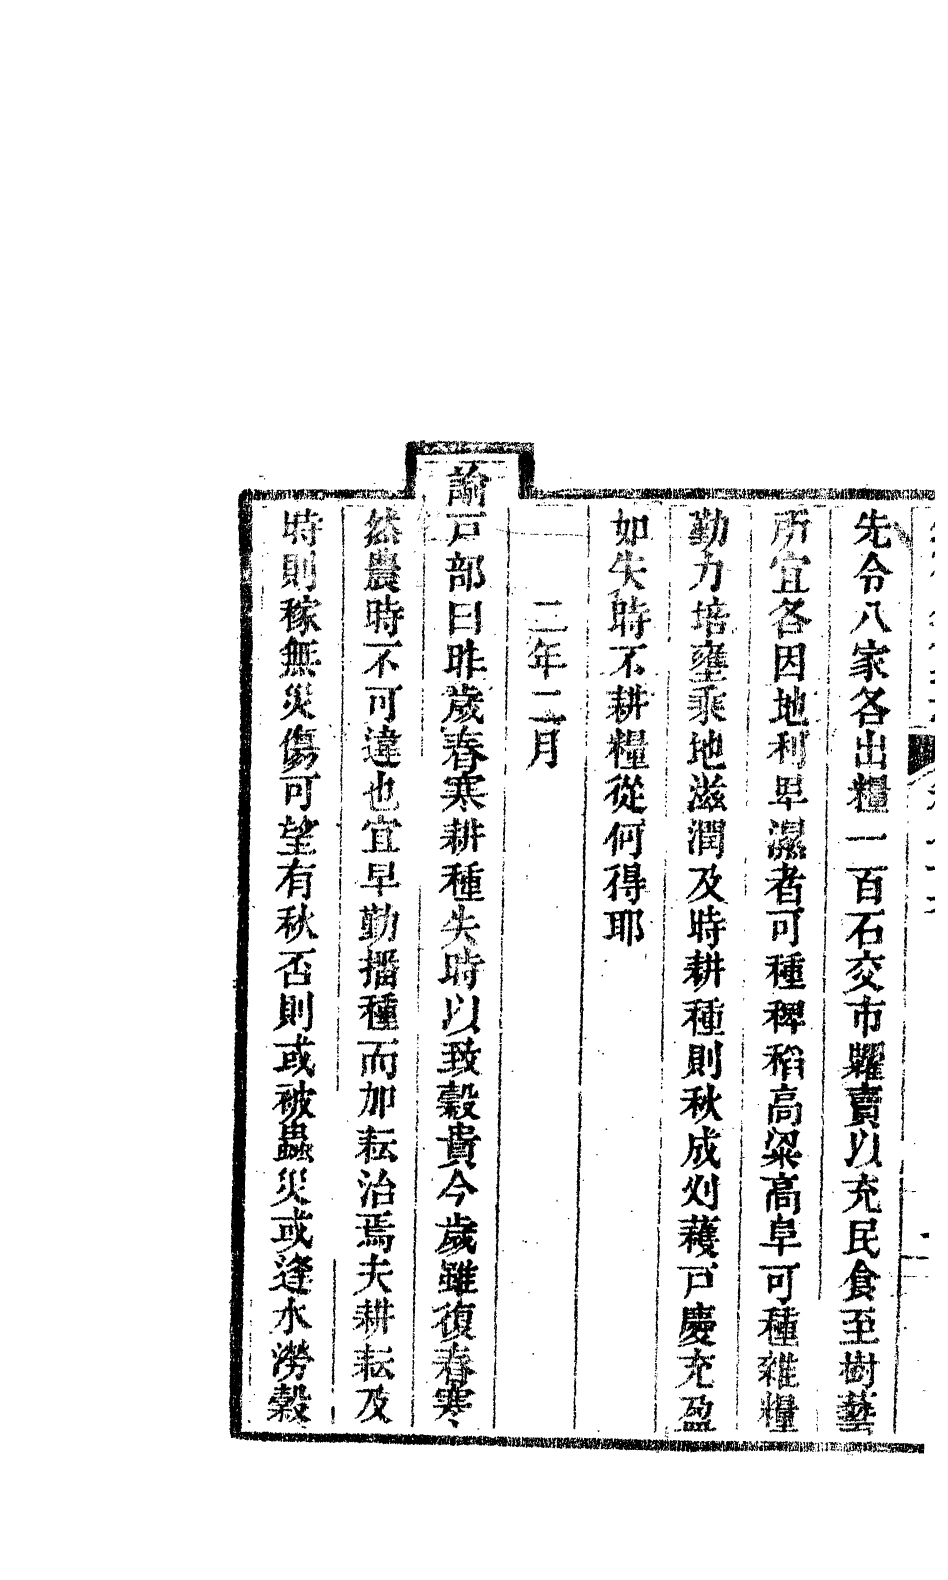 先令八家各出糧一百石交市糶賣以充民食至樹藝
所宜各因地利卑濕者可種稗稻高粱高阜可種雜糧
勤力培壅乘地滋潤及時耕種則秋成刈穫戸慶充盈
如失時不耕糧從何得耶
二年二月
諭戸部曰昨歲春寒耕種失時以致穀貴今歲雖復春寒
然農時不可違也宜早勤播種而加耘治焉夫耕耘及
時則稼無災傷可望有秋否則或被蟲災或逢水澇穀